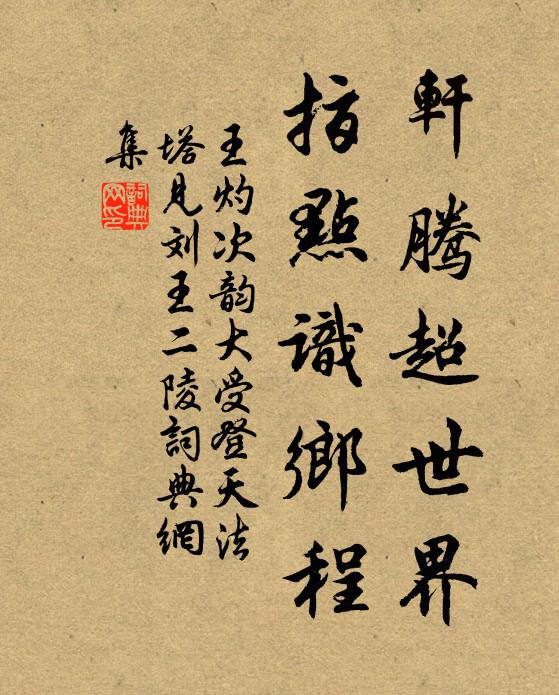 軒騰超世界
指點識鄉程
王灼次韵大受登天法
塔见刘王二陵詞典網
集
詞典
网印